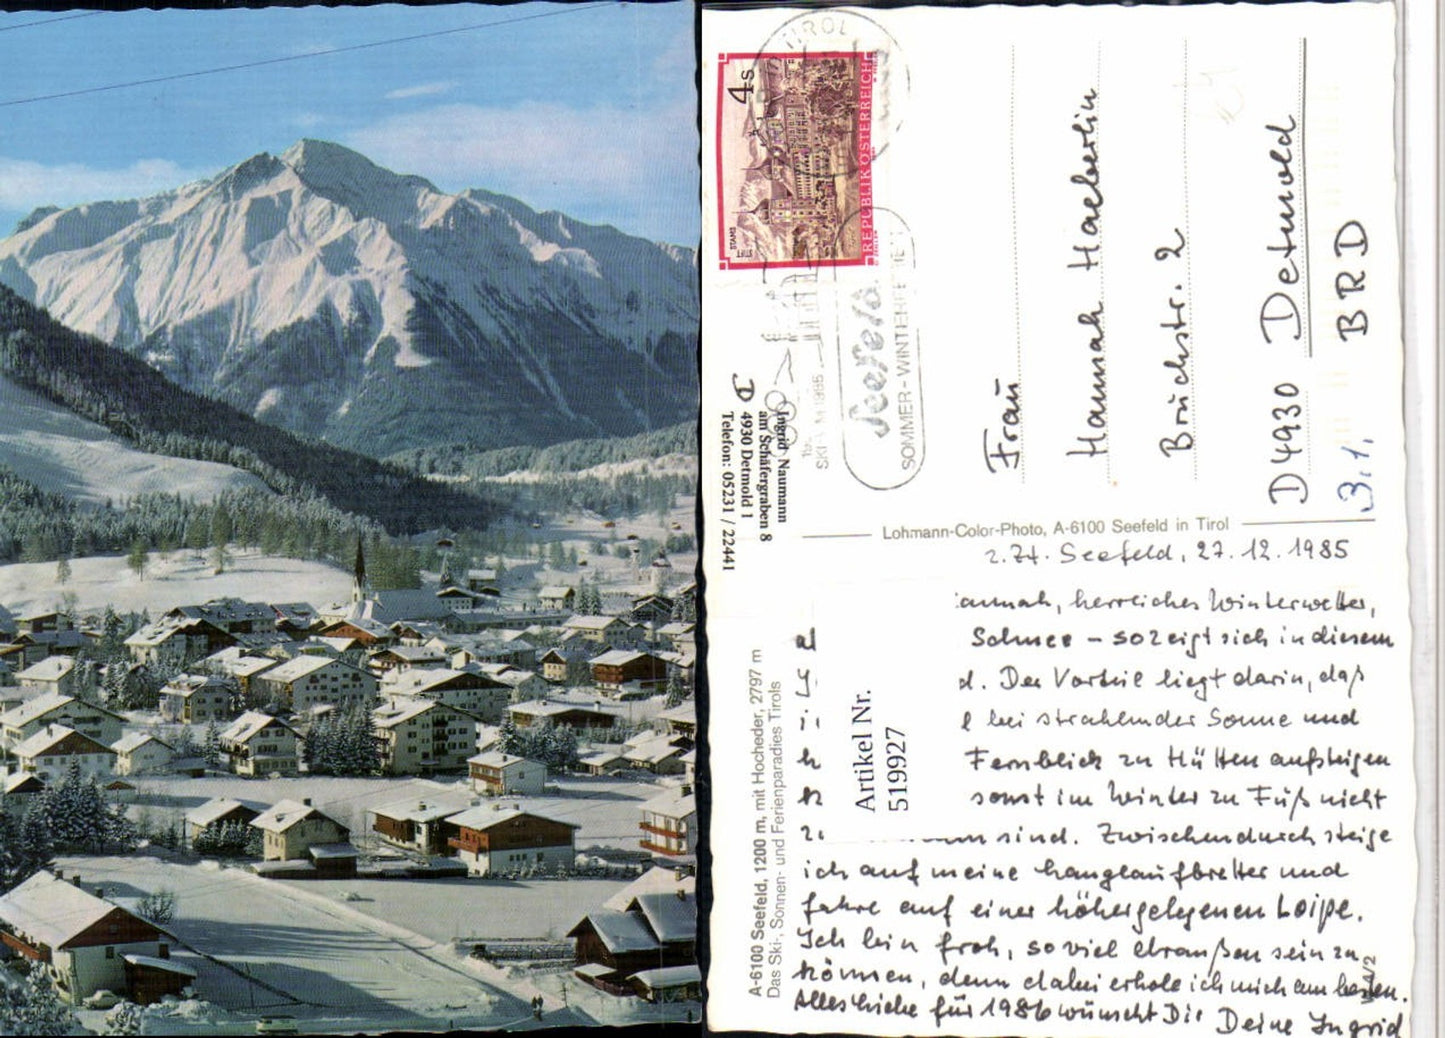 TIROL
4 S
REPUBLIK ÖSTERREICH
STIFT STAMS
Seefeld
SOMMER-WINTER
SKI-WM 1985
Ingrid Naumann
am Schäfergraben 8
D 4930 Detmold 1
Telefon: 05231 / 22441
Frau
Hannah Haeberlin
Bruchstr. 2
D 4930 Detmold
BRD
Lohmann-Color-Photo, A-6100 Seefeld in Tirol
z.Zt. Seefeld, 27.12.1985
annah, herrliches Winterwetter,
Schnee – so zeigt sich in diesem
d. Der Vorteil liegt darin, daß
bei strahlender Sonne und
Fernblick zu Hütten aufsteigen
sonst im Winter zu Fuß nicht
sind. Zwischendurch steige
ich auf meine Langlaufbretter und
fahre auf einer höhergelegenen Loipe.
Ich bin froh, so viel draußen sein zu
können, denn dabei erhole ich mich am besten.
Alles Liebe für 1986 wünscht Dir Deine Ingrid
Artikel Nr.
519927
A-6100 Seefeld, 1200 m, mit Hocheder, 2797 m
Das Ski-, Sonnen- und Ferienparadies Tirols